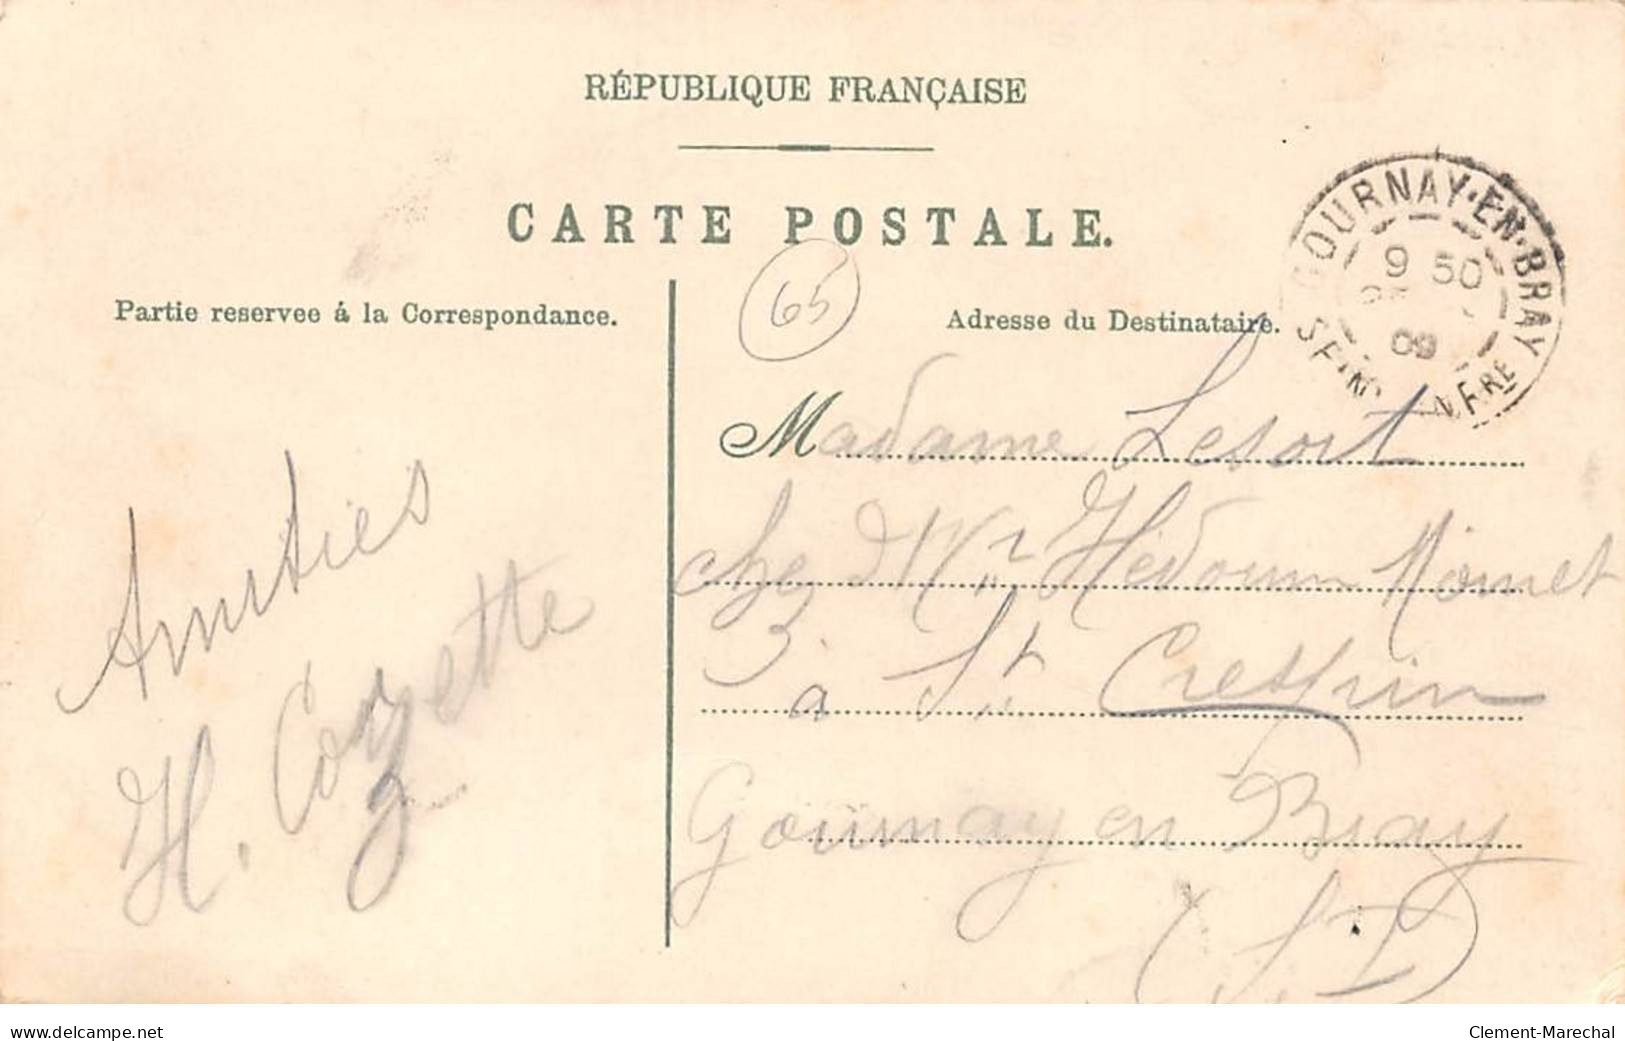 RÉPUBLIQUE FRANÇAISE
CARTE POSTALE.
Partie reservee á la Correspondance.
65
Adresse du Destinataire.
GOURNAY-EN-BRAY
9 50
09
Madame Lesort
che Mr Hédouin
3 a St Crespin
Gournay en Bray
Amitiés
H. Cozette
www.delcampe.net
Clement-Marechal